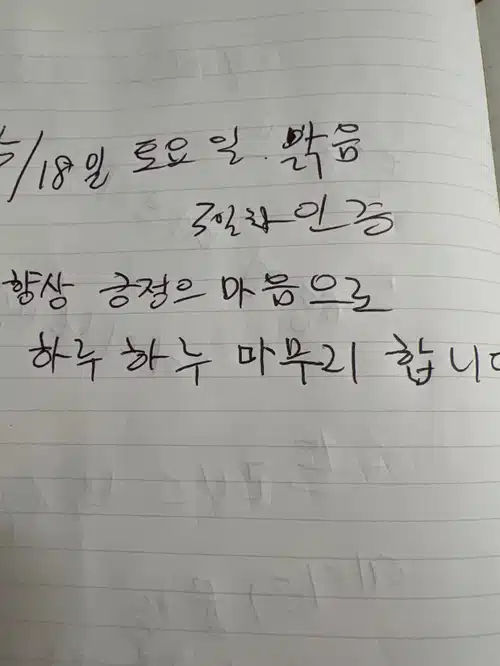 5/18일 토요일. 맑음
3일차 인증
향상 긍정으 마음으로
하루 하누 마무리 합니다